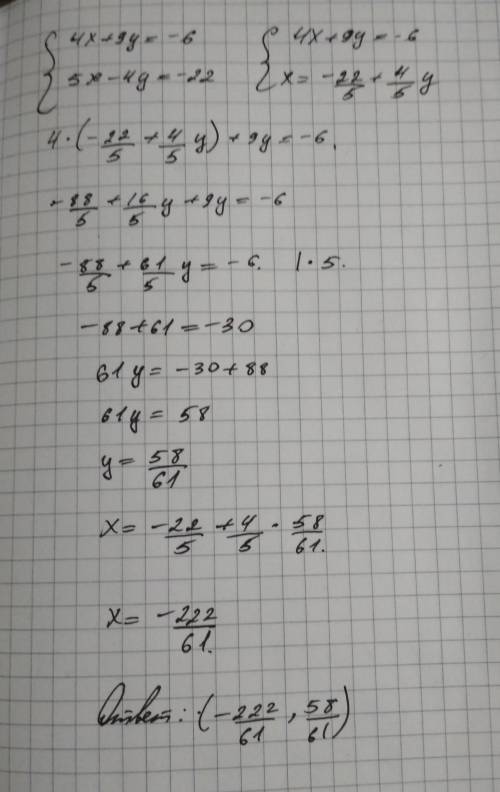 { 4x+9y = -6    { 4x+9y = -6
{ 5x-4y = -22    { x = -22/5 + 4/5 y
4·(-22/5 + 4/5 y) + 9y = -6.
-88/5 + 16/5 y + 9y = -6
-88/5 + 61/5 y = -6.    | · 5.
-88+61 = -30
61y = -30+88
61y = 58
y = 58/61
x = -22/5 + 4/5 · 58/61.
x = -222/61.
Ответ: (-222/61, 58/61)